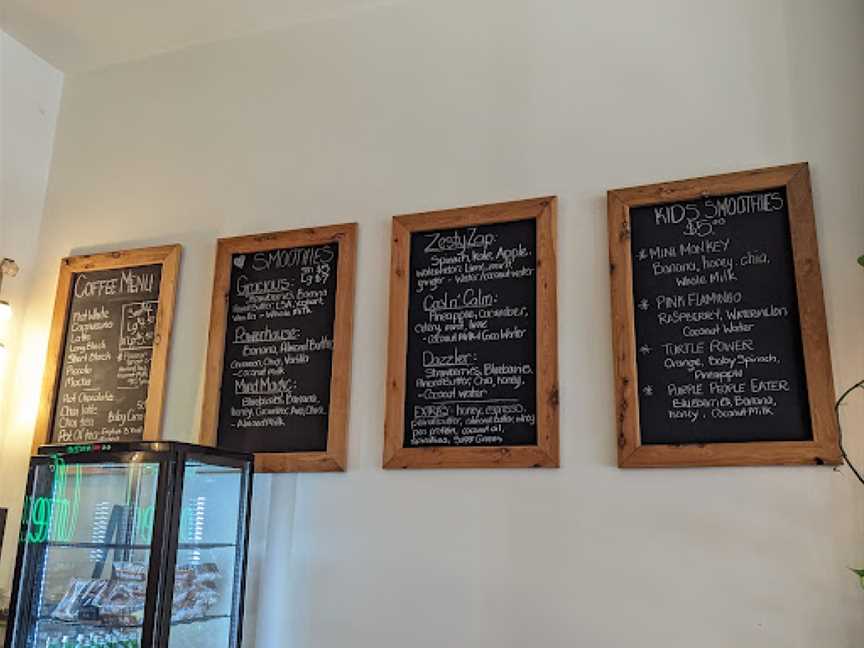 COFFEE MENU
Flat White
Cappuccino
Latte
Long Black
Short Black
Piccolo
Mocha
Hot Chocolate
Chai latte
Chai tea
Pot of tea
Baby Cino
SMOOTHIES
Lg $9
Gracious:
Strawberries, Banana
Butter, LSA, Yoghurt
Vanilla - Whole Milk
Powerhouse:
Banana, Almond Butter
Cinnamon, Chia, Vanilla
- Coconut milk
Mind Magic:
Blueberries, Banana,
honey, Chia,
- Almond Milk
Zesty Zap:
Spinach, Kale, Apple,
mint,
ginger - Water/Coconut water
Cool n' Calm:
Pineapple, cucumber,
celery, mint, lime
- Coconut Milk + Coco Water
Dazzler:
Strawberries, Blueberries,
Almond Butter, Chia, honey,
- Coconut water
EXTRAS: honey, espresso,
peanut butter, almond butter, whey
pea protein, coconut oil,
spirulina, Super Greens
KIDS SMOOTHIES
$5.00
* MINI MONKEY
Banana, honey, chia,
Whole Milk
* PINK FLAMINGO
RASPBERRY, WATERMELON
Coconut Water
* TURTLE POWER
Orange, Baby Spinach,
Pineapple
* PURPLE PEOPLE EATER
Blueberries, Banana,
honey, Coconut Milk